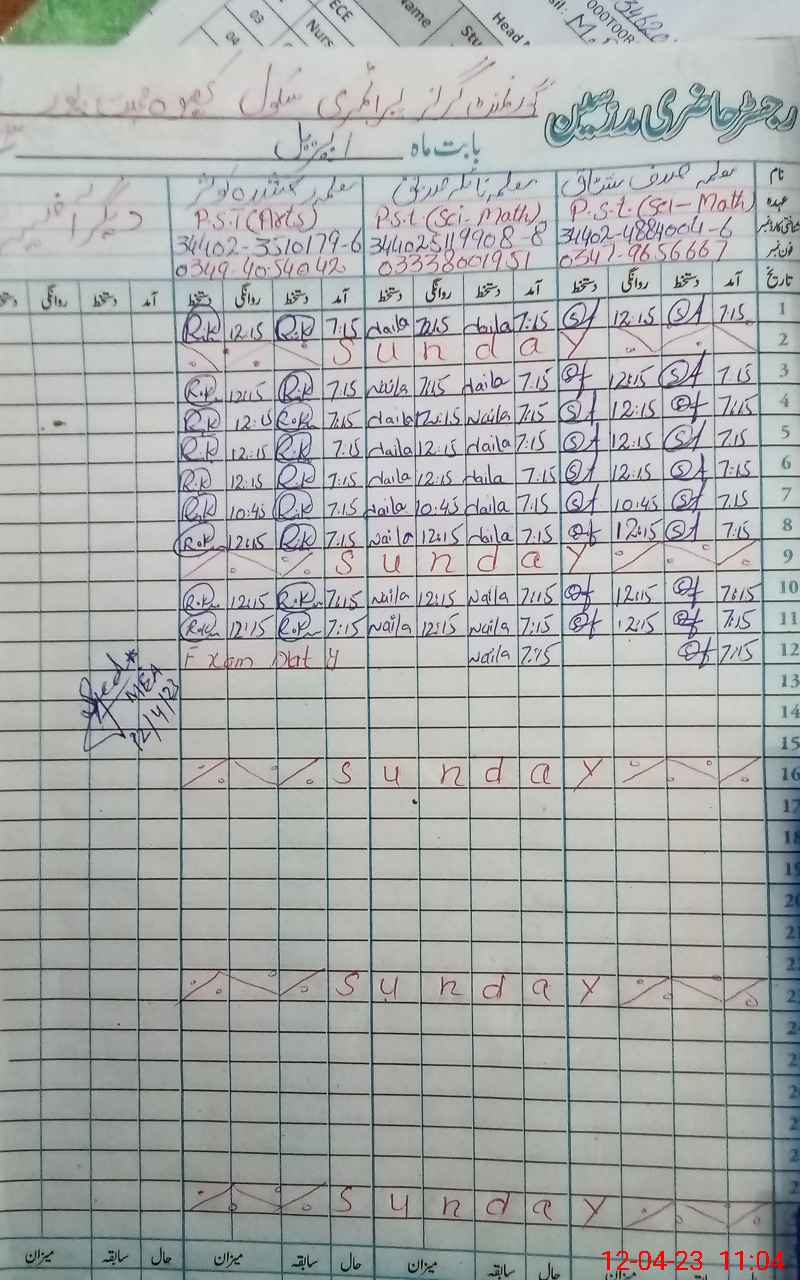 ECE
03
04
Nurs
Name
Stu
Head
34620
رجسٹر حاضری مدرسین گورنمنٹ گرلز پرائمری سکول
بابت ماہ اپریل
نام معلمہ صدف مشتاق معلمہ نائلہ صدیق معلمہ
عہدہ P.S.t.(Sci-Math) P.S.t.(Sci-Math) P.S.T(Arts)
34402-4884004-6 344025119908-8 34402-3510179-6
فون نمبر 0347-9656667 03338001951 0349-4054042
تاریخ آمد دستخط روانگی دستخط آمد دستخط روانگی دستخط آمد دستخط روانگی دستخط آمد دستخط روانگی
1 7:15 SA 12:15 SA 7:15 Naila 12:15 Naila 7:15 R.K 12:15 R.K
2 Sunday
3 7:15 SA 12:15 7:15 Naila 7:15 Naila 7:15 R.K 12:15 R.K
4 7:15 12:15 SA 7:15 Naila 12:15 Naila 7:15 R.K 12:15 R.K
5 7:15 SA 12:15 SA 7:15 Naila 12:15 Naila 7:15 R.K 12:15 R.K
6 7:15 SA 12:15 SA 7:15 Naila 12:15 Naila 7:15 R.K 12:15 R.K
7 7:15 SA 10:45 SA 7:15 Naila 10:45 Naila 7:15 R.K 10:45 R.K
8 7:15 SA 12:15 7:15 Naila 12:15 Naila 7:15 R.K 12:15 R.K
9 Sunday
10 7:15 12:15 7:15 Naila 12:15 Naila 7:15 R.K 12:15 R.K
11 7:15 12:15 7:15 Naila 12:15 Naila 7:15 R.K 12:15 R.K
12 7:15 7:15 Naila Exam Duty
MEA
12/4/23
13
14
15
16 Sunday
17
18
19
20
21
22
23 Sunday
24
Sunday
حال سابقہ میزان حال سابقہ میزان حال سابقہ میزان
12-04-23 11:04